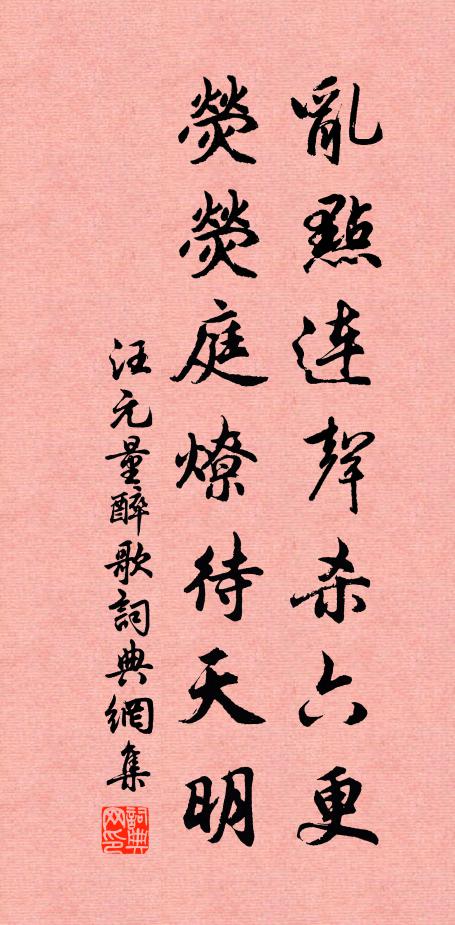 亂點連聲殺六更
熒熒庭燎待天明
汪元量醉歌詞典網集
詞典网印